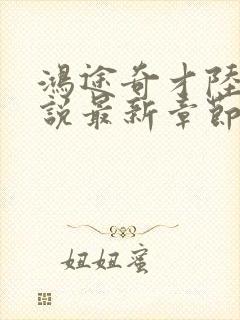 鴻途奇才陸
說最新章節
妞妞蜜